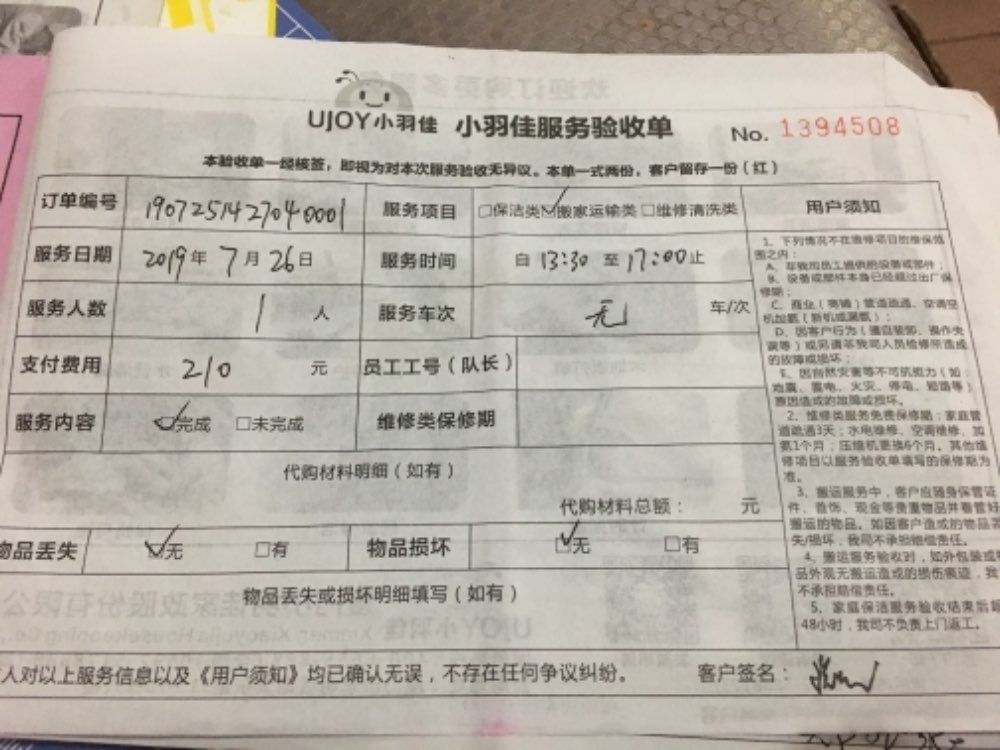 UJOY小羽佳 小羽佳服务验收单 No. 1394508
本验收单一经核签，即视为对本次服务验收无异议。本单一式两份，客户留存一份（红）
订单编号 1907251427040001 服务项目 □保洁类☑搬家运输类□维修清洗类
服务日期 2019年7月26日 服务时间 自13:30至17:00止
服务人数 1人 服务车次 无 车/次
支付费用 210 元 员工工号（队长）
服务内容 ☑完成 □未完成 维修类保修期
代购材料明细（如有）
代购材料总额： 元
物品丢失 ☑无 □有 物品损坏 ☑无 □有
物品丢失或损坏明细填写（如有）
人对以上服务信息以及《用户须知》均已确认无误，不存在任何争议纠纷。 客户签名：
用户须知
1、下列情况不在维修项目的维保范
围之内：
A、非我司员工提供的设备或部件；
B、设备或部件本身已经超过出厂保
修期；
C、商业（商铺）管道疏通、空调空
机加氨（新机或漏氨）；
D、因客户行为（擅自装卸、操作失
误等）或另请非我司人员检修所造成
的故障或损坏；
E、因自然灾害等不可抗能力（如：
地震、雷电、火灾、停电、短路等）
原因造成的故障或损坏。
2、维修类服务免费保修期：家庭管
道疏通3天；水电维修、空调维修、加
氨1个月；压缩机更换6个月。其他维
修项目以服务验收单填写的保修期为
准。
3、搬运服务中，客户应随身保管证
件、首饰、现金等贵重物品并看管好
搬运的物品。如因客户造成的物品丢
失/损坏，我司不承担赔偿责任。
4、搬运服务验收时，如外包装或
品外观无搬运造成的损伤痕迹，我
不承担赔偿责任。
5、家庭保洁服务验收结束后超
48小时，我司不负责上门返工。